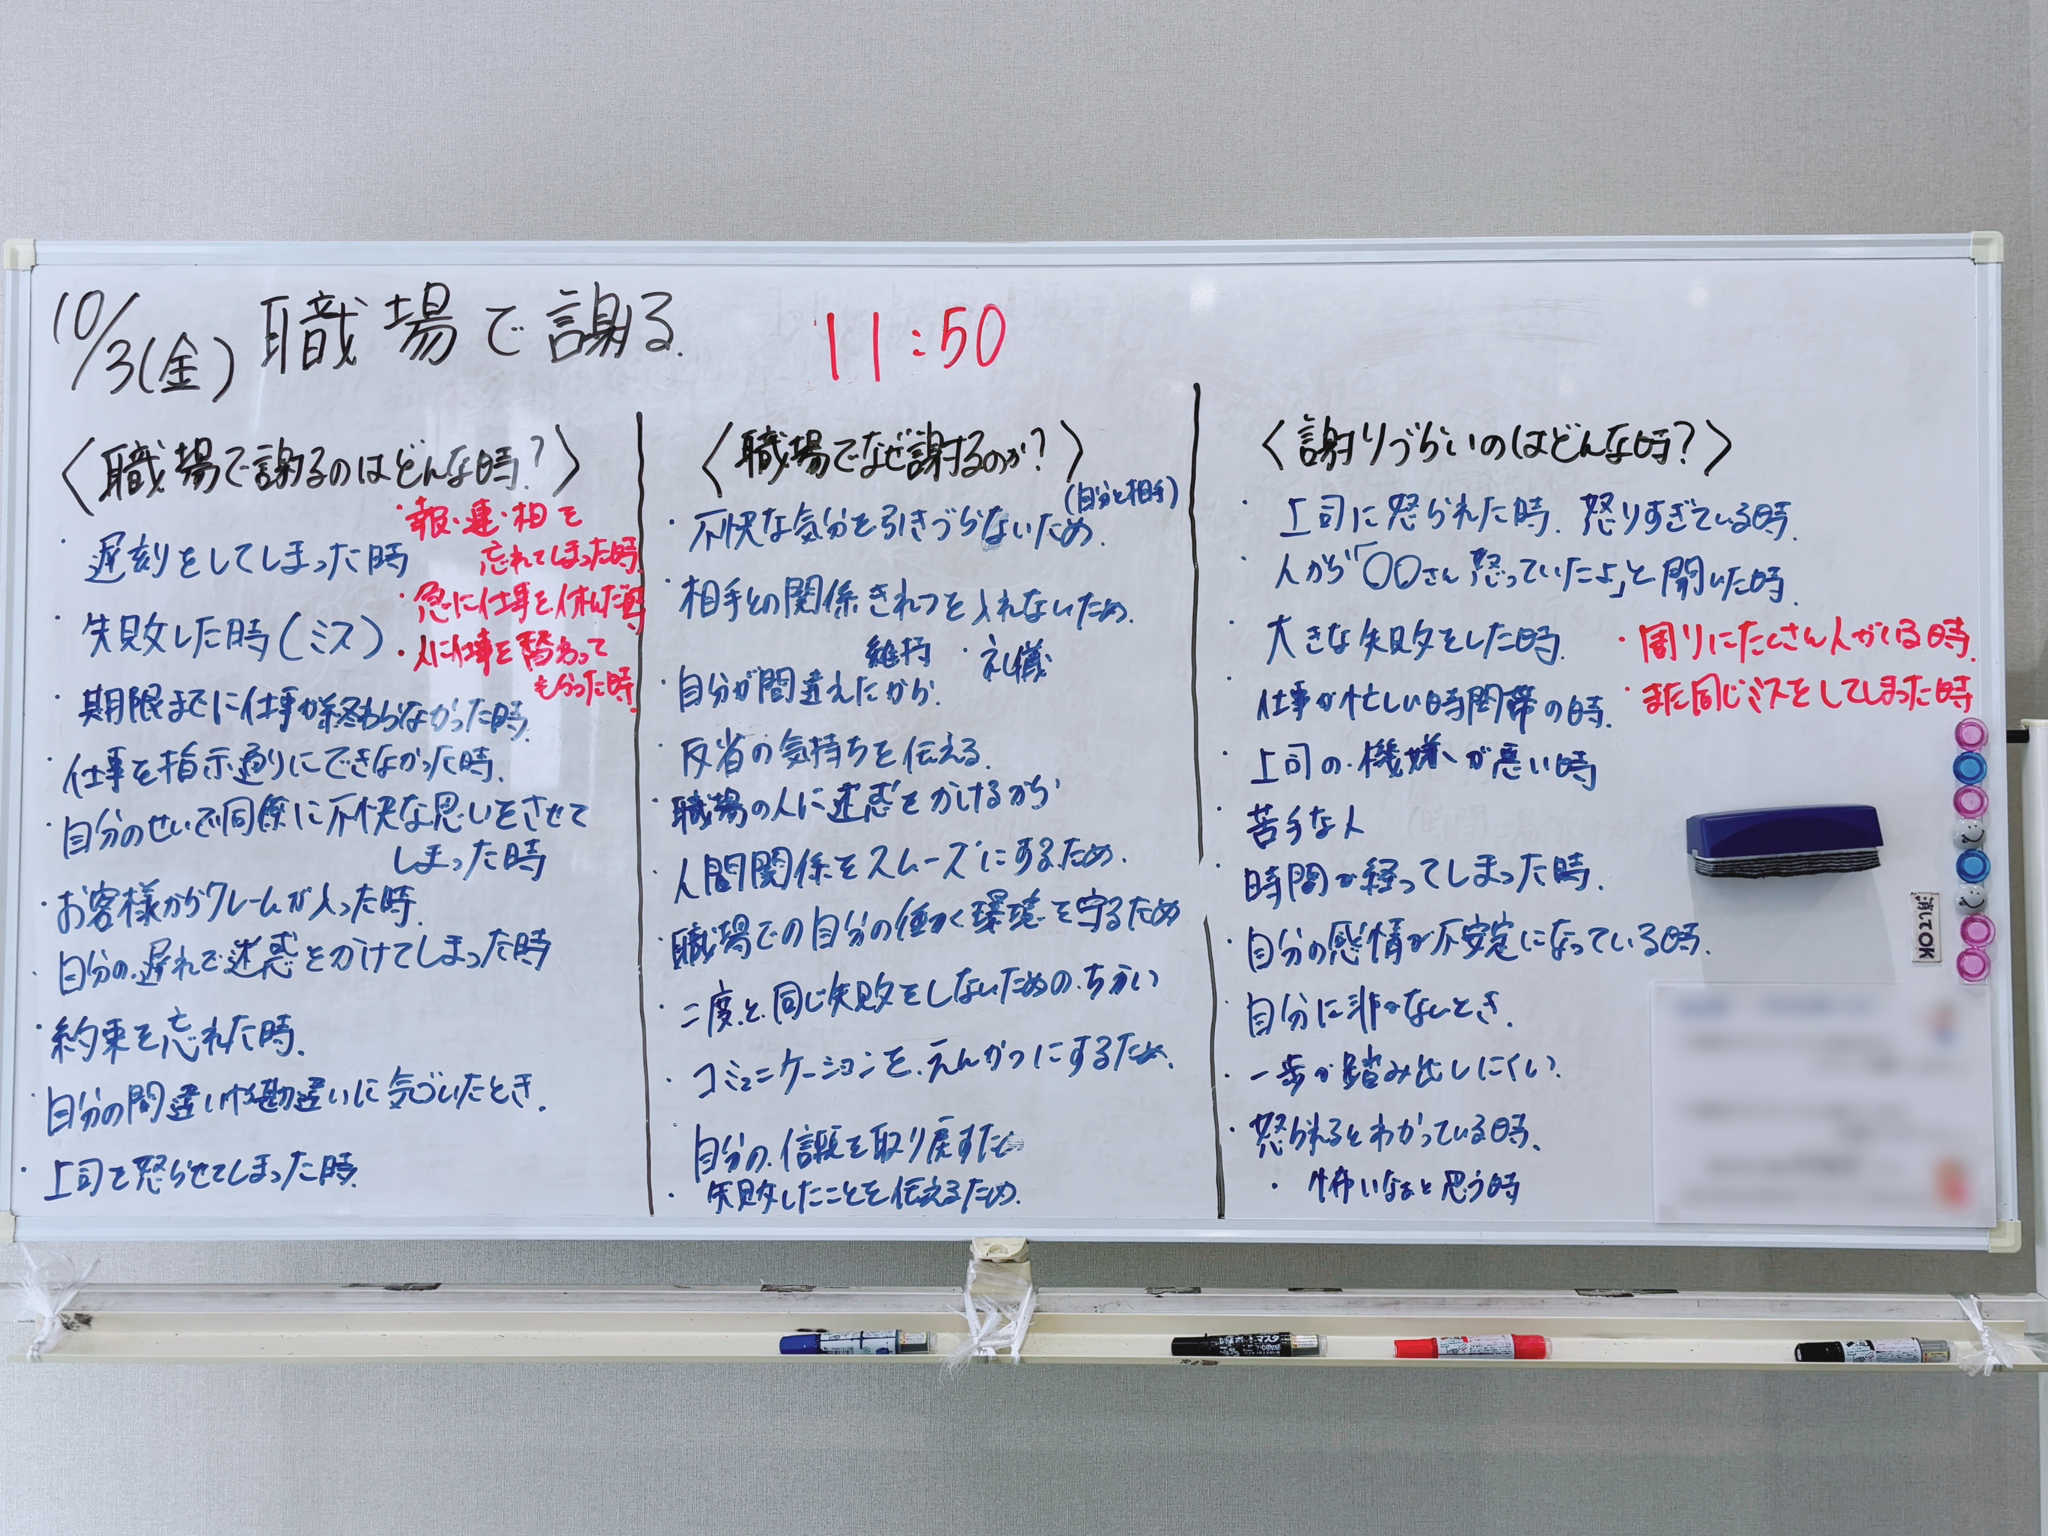 10/3(金) 職場で謝る.
11:50
〈職場で謝るのはどんな時?〉
・遅刻をしてしまった時
・失敗した時(ミス)
・期限までに仕事が終わらなかった時.
・仕事を指示通りにできなかった時.
・自分のせいで同僚に不快な思いをさせて
しまった時
・お客様からクレームが入った時.
・自分の遅れで迷惑をかけてしまった時
・約束を忘れた時.
・自分の間違いや勘違いに気づいたとき.
・上司を怒らせてしまった時.
・報・連・相を
忘れてしまった時.
・急に仕事を休んだ時
・人に仕事を替わって
もらった時.
〈職場でなぜ謝するのか?〉
(自分と相手)
・不快な気分を引きづらないため.
・相手との関係きれつを入れないため.
維持
・礼儀
・自分が間違えたから.
・反省の気持ちを伝える.
・職場の人に迷惑をかけるから
・人間関係をスムーズにするため.
・職場での自分の働く環境を守るため
・二度と同じ失敗をしないためのちかい
・コミュニケーションを、えんかつにするため.
自分の信頼を取り戻すため
・失敗したことを伝えるため.
〈謝りづらいのはどんな時?〉
・上司に怒られた時. 怒りすぎている時.
・人から「〇〇さん怒っていたよ」と聞いた時.
・大きな失敗をした時.
・仕事が忙しい時間帯の時.
・上司の機嫌が悪い時
・苦手な人
・時間が経ってしまった時.
・自分の感情が不安定になっている時.
・自分に非がないとき.
・一歩が踏み出しにくい.
・怒られるとわかっている時.
・怖いなぁと思う時
・周りにたくさん人がいる時.
・また同じミスをしてしまった時
消してOK